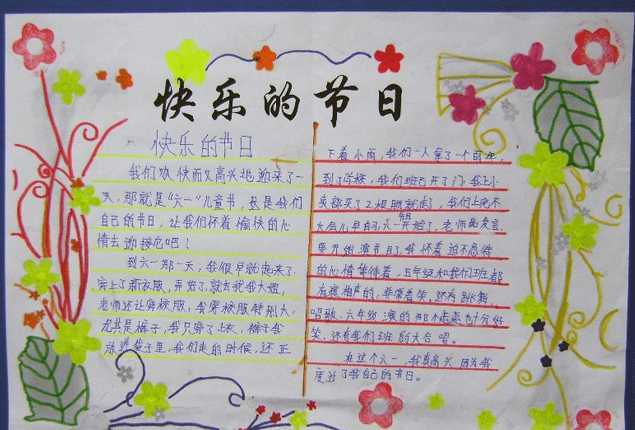 快乐的节日
快乐的节日
我们欢快而又高兴地迎来了一
天，那就是“六一”儿童节，这是我们
自己的节日，让我们怀着愉快的心
情去迎接它吧！
到六一那一天，我很早就起来了.
穿上了新衣服，弄好了，就去我大姐，
老师还让穿校服，我穿校服特别大，
尤其是裤子，我只穿了上衣，裤子我
放进袋子里，我们走的时候，还正
下着小雨，我们一人拿了一个
到了学校，我们班已开了门，我上小
卖部买了
六一开始了，老师
要开始演节目了，我怀着迫不急待
的心情等待着，五年级和我们班都
有演相声的，非常着笑，还有跳舞，
唱歌，六年级演的那个恋恋也十分好
笑，还有我们班的大合唱。
在这个六一，我真高兴，因为我
度过了我自己的节日。